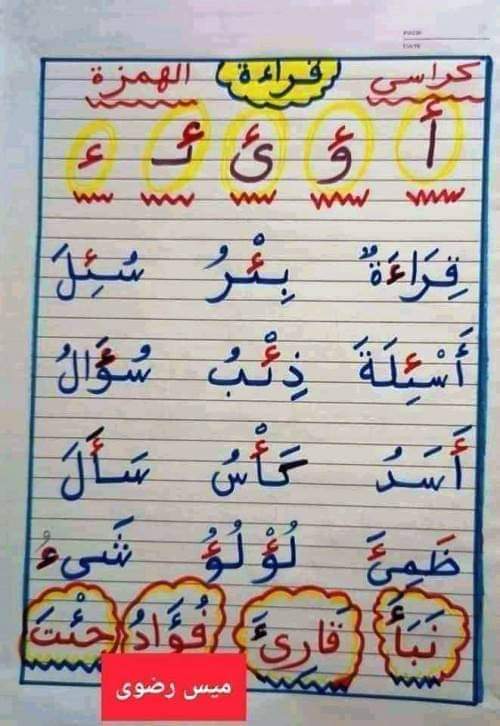 كراسى قراءة الهمزة
أ ؤ ئ ئـ ء
قِرَاءَةٌ بِئْرُ سُئِلَ
أَسْئِلَةَ ذِئْبُ سُؤَالُ
أَسَدُ كَأْسُ سَأَلَ
ظَمِئَ لُؤْلُؤُ شَىءُ
نَبَأَ قَارِئَ فُؤَادُ جِئْتَ
ميس رضوى